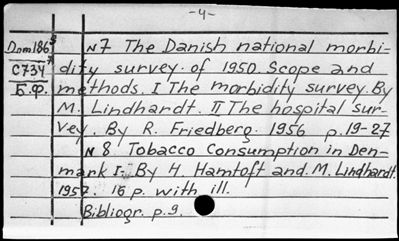 -4-
Dnm186 N7 The Danish national morbi-
C734 dity survey of 1950. Scope and
Б.Ф. methods. I The morbidity survey. By
M. Lindhardt. II The hospital sur-
vey. By R. Friedberg. 1956 p. 19-27
N 8. Tobacco Consumption in Den-
mark I. By H. Hamtoft and M. Lindhardt.
1957. 16 p. with ill.
Bibliogr. p. 9.